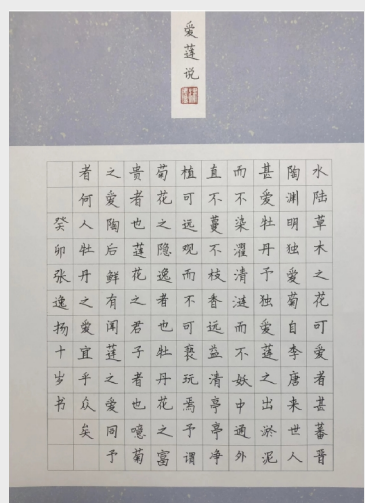 爱莲说
水陆草木之花可爱者甚蕃晋
陶渊明独爱菊自李唐来世人
甚爱牡丹予独爱莲之出淤泥
而不染濯清涟而不妖中通外
直不蔓不枝香远益清亭亭净
植可远观而不可亵玩焉予谓
菊花之隐逸者也牡丹花之富
贵者也莲花之君子者也噫菊
之爱陶后鲜有闻莲之爱同予
者何人牡丹之爱宜乎众矣
癸卯张逸扬十岁书